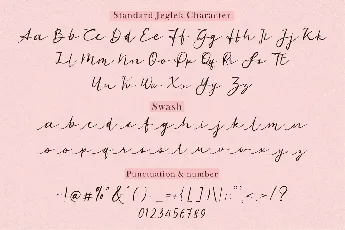 Standard Jeglek Character
Aa Bb Cc Dd Ee Ff Gg Hh Ii Jj Kk
Ll Mm Nn Oo Pp Qq Rr Ss Tt
Uu Vv Ww Xx Yy Zz
Swash
a b c d e f g h i j k l m n
o p q r s t u v w x y z
Punctuation & number
0123456789